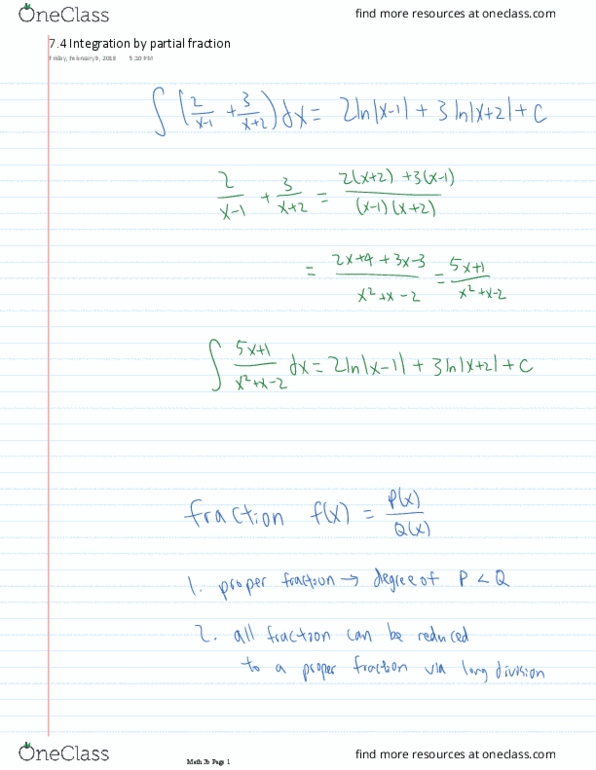 OneClass find more resources at oneclass.com
7.4 Integration by partial fraction
Friday, February 9, 2018 5:10 PM
∫ (2/(x-1) + 3/(x+2)) dx = 2ln|x-1| + 3 ln|x+2| + C
2/(x-1) + 3/(x+2) = (2(x+2) + 3(x-1))/((x-1)(x+2))
= (2x+4+3x-3)/(x²+x-2) = (5x+1)/(x²+x-2)
∫ (5x+1)/(x²+x-2) dx = 2ln|x-1| + 3ln|x+2| + C
fraction f(x) = P(x)/Q(x)
1. proper fraction → degree of P < Q
2. all fraction can be reduced
to a proper fraction via long division
OneClass Math 2b Page 1 find more resources at oneclass.com